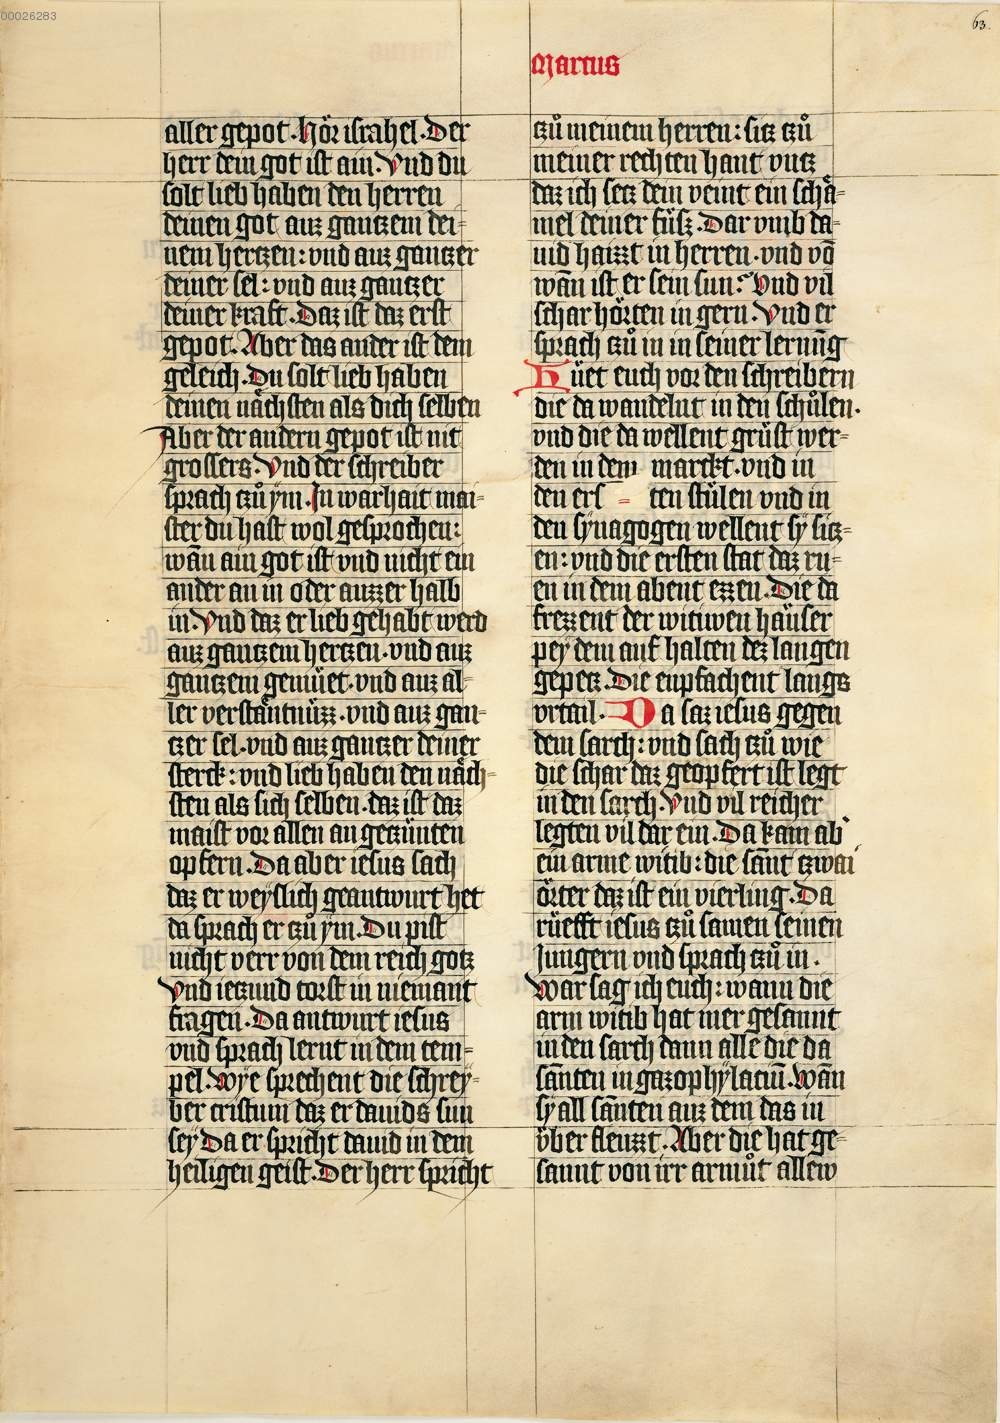 00026283
63.
Marcus
aller gepot. Hör israhel. Der
herr dein got ist ain. Vnd du
solt lieb haben den herren
deinen got auz gantzem dei=
nem hertzen: vnd auz gantzer
deiner sel: vnd auz gantzer
deiner kraft. Daz ist daz erst
gepot. Aber das ander ist dem
geleich. Du solt lieb haben
deinen nächsten als dich selben
Aber der andern gepot ist nit
grossers. Vnd der schreiber
sprach tzů ym. In warhait mai=
ster du hast wol gesprochen:
wān ain got ist vnd nicht ein
ander an in oder auzzer halb
in. Vnd daz er lieb gehabt werd
auz gantzem hertzen. vnd auz
gantzem gemüet. vnd auz al=
ler verstäntnüzz. vnd auz gan=
tzer sel. vnd auz gantzer deiner
sterck: vnd lieb haben den näch=
sten als sich selben. daz ist daz
maist vor allen an getzünten
opfern. Da aber iesus sach
daz er weyslich geantwurt het
da sprach er tzů ym. Du pist
nicht verr von dem reich gotz
Vnd ietzund torst in niemant
fragen. Da antwurt iesus
vnd sprach lernt in dem tem=
pel. Wye sprechent die schrey=
ber cristum daz er dauids sun
sey Da er spricht dauid in dem
heiligen geist. Der herr spricht
tzů meinem herren: sitz tzů
meiner rechten hant vntz
daz ich setz dein veint ein schä=
mel deiner füsz. Dar vmb da=
uid haizzt in herren. vnd vō
wān ist er sein sun. Vnd vil
schar hörten in gern. Vnd er
sprach tzů in in seiner lernūg
Hüet euch vor den schreibern
die da wandelnt in den schůlen.
vnd die da wellent grüst wer=
den in dem marckt. vnd in
den ers = ten stülen vnd in
den synagogen wellent sy sitz=
en: vnd die ersten stat daz ru=
en in dem abent ezzen. Die da
frezzent der witiwen häuser
pey dem auf halten dez langen
gepetz. Die enpfachent langs
vrtail. Da saz iesus gegen
dem sarch: vnd sach tzů wie
die schar daz geopfert ist legt
in den sarch. Vnd vil reicher
legten vil dar ein. Da kam ab
ein arme witib: die sānt tzwai
örter daz ist ein vierling. Da
rüefft iesus tzů samen seinen
Jungern vnd sprach tzů in.
War sag ich euch: wann die
arm witib hat mer gesannt
in den sarch dann alle die da
sānten in gazophylaciū. Wān
sy all sānten auz dem das in
über fleuzzt. Aber die hat ge=
sannt von irr armůt allew